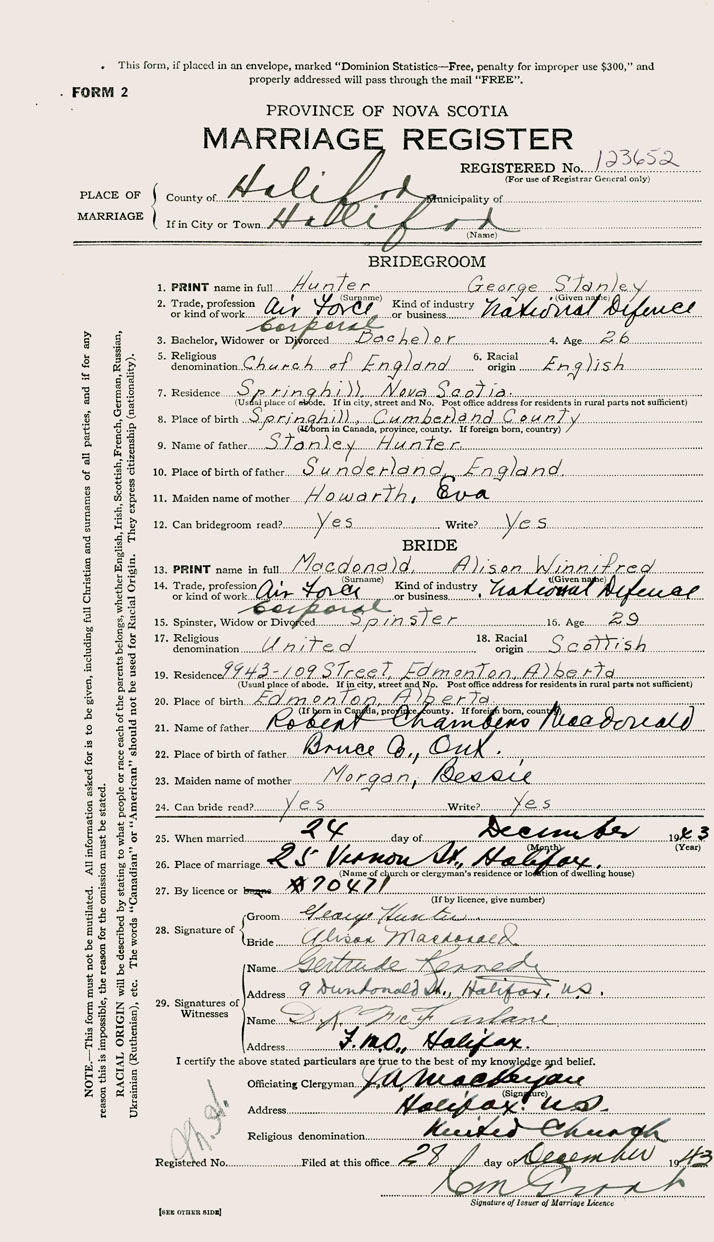 This form, if placed in an envelope, marked "Dominion Statistics—Free, penalty for improper use $300," and
properly addressed will pass through the mail "FREE".
FORM 2
PROVINCE OF NOVA SCOTIA
MARRIAGE REGISTER
REGISTERED No. 123652
(For use of Registrar General only)
PLACE OF MARRIAGE
County of Halifax Municipality of
If in City or Town Halifax
(Name)
BRIDEGROOM
1. PRINT name in full Hunter George Stanley
(Surname) (Given name)
2. Trade, profession or kind of work Air Force Corporal Kind of industry or business National Defence
3. Bachelor, Widower or Divorced Bachelor 4. Age 26
5. Religious denomination Church of England 6. Racial origin English
7. Residence Springhill, Nova Scotia.
(Usual place of abode. If in city, street and No. Post office address for residents in rural parts not sufficient)
8. Place of birth Springhill, Cumberland County
(If born in Canada, province, county. If foreign born, country)
9. Name of father Stanley Hunter
10. Place of birth of father Sunderland, England.
11. Maiden name of mother Howarth, Eva
12. Can bridegroom read? Yes Write? Yes
BRIDE
13. PRINT name in full Macdonald, Alison Winnifred
(Surname) (Given name)
14. Trade, profession or kind of work Air Force Corporal Kind of industry or business National Defence
15. Spinster, Widow or Divorced Spinster 16. Age 29
17. Religious denomination United 18. Racial origin Scottish
19. Residence 9943-109 Street, Edmonton, Alberta
(Usual place of abode. If in city, street and No. Post office address for residents in rural parts not sufficient)
20. Place of birth Edmonton, Alberta
(If born in Canada, province, county. If foreign born, country)
21. Name of father Robert Chambers Macdonald
22. Place of birth of father Bruce Co., Ont.
23. Maiden name of mother Morgan, Bessie
24. Can bride read? Yes Write? Yes
25. When married 24 day of December 1943
(Month) (Year)
26. Place of marriage 25 Vernon St., Halifax.
(Name of church or clergyman's residence or location of dwelling house)
27. By licence or banns #70471
(If by licence, give number)
28. Signature of
Groom George Hunter
Bride Alison Macdonald.
29. Signatures of Witnesses
Name Gertrude Kennedy
Address 9 Dundonald St., Halifax, N.S.
Name D. K. McFarlane
Address F.M.O., Halifax.
I certify the above stated particulars are true to the best of my knowledge and belief.
Officiating Clergyman
(Signature)
Address Halifax N.S.
Religious denomination United Church
Registered No. Filed at this office 28 day of December 1943
Signature of Issuer of Marriage Licence
[SEE OTHER SIDE]
NOTE.—This form must not be mutilated. All information asked for is to be given, including full Christian and surnames of all parties, and if for any
reason this is impossible, the reason for the omission must be stated.
RACIAL ORIGIN will be described by stating to what people or race each of the parents belongs, whether English, Irish, Scottish, French, German, Russian,
Ukrainian (Ruthenian), etc. The words "Canadian" or "American" should not be used for Racial Origin. They express citizenship (nationality).